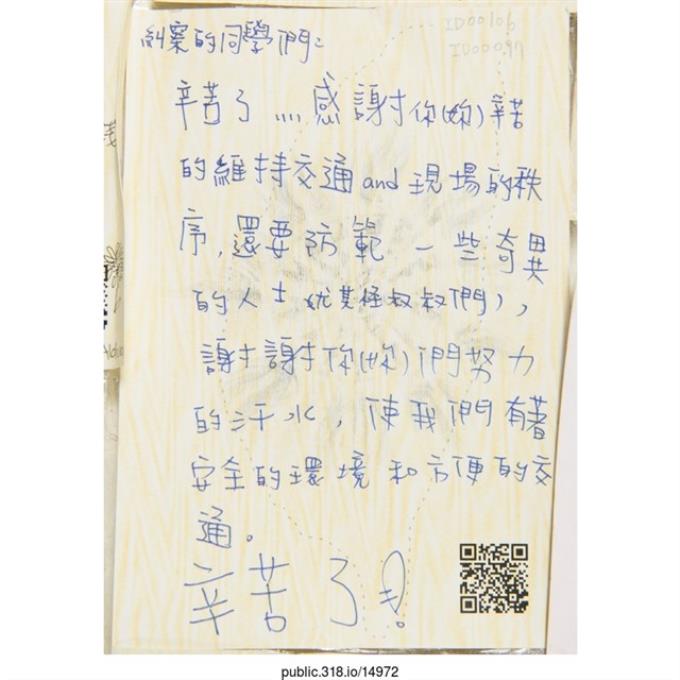 ID00106
ID00097
糾察的同學們：
辛苦了....感謝你(妳)辛苦
的維持交通and現場的秩
序，還要防範一些奇異
的人士(尤其怪叔叔們)，
謝謝你(妳)們努力
的汗水，使我們有著
安全的環境和方便的交
通。
辛苦了!
public.318.io/14972